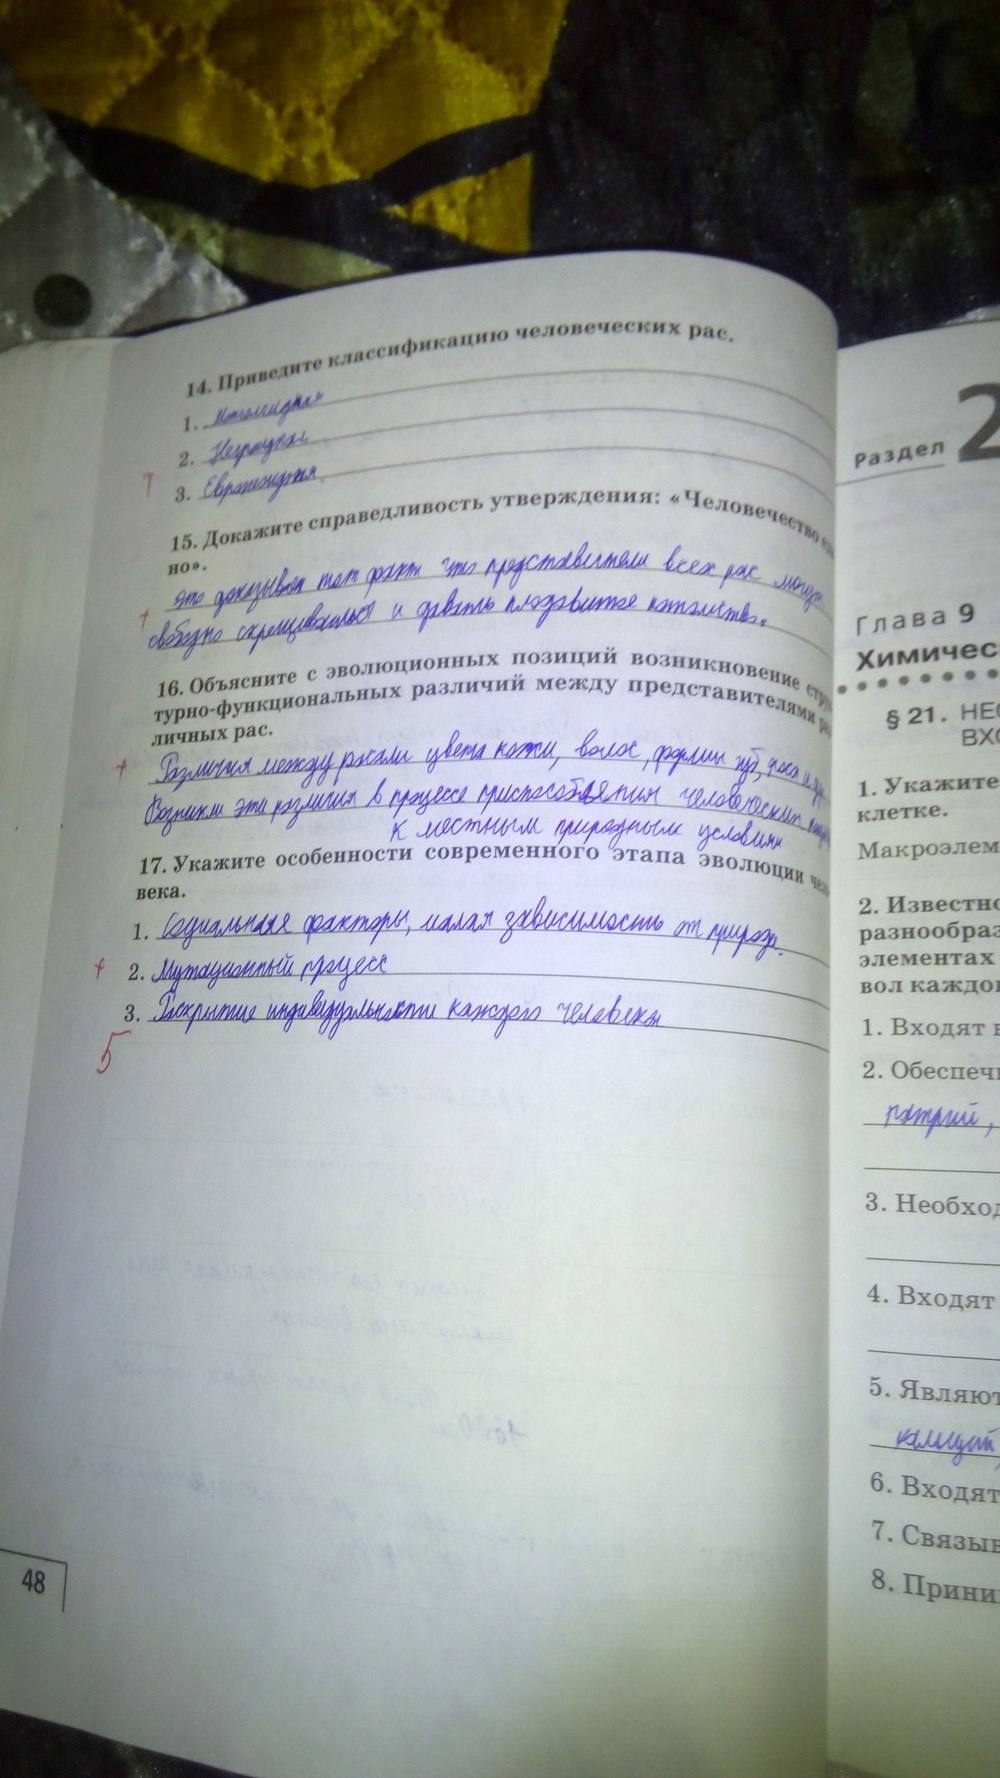 14. Приведите классификацию человеческих рас.
1. Монголоидная
2. Негроидная
3. Европеоидная
15. Докажите справедливость утверждения: «Человечество
но».
это доказывает тот факт что представители всех рас могут
свободно скрещиваться и давать плодовитое потомство.
16. Объясните с эволюционных позиций возникновение
турно-функциональных различий между представителями
личных рас.
Различия между расами цвета кожи, волос, формы губ, носа и др.
Возникли эти различия в процессе приспособления человеческих
к местным природным условиям
17. Укажите особенности современного этапа эволюции чело
века.
1. Социальная факторы, малая зависимость от природы.
2. Мутационный процесс
3. Раскрытие индивидуальности каждого человека
5
48
Раздел 2
Глава 9
Химичес
§ 21. НЕО
ВХО
1. Укажите
клетке.
Макроэлем
2. Известно
разнообраз
элементах
вол каждо
1. Входят в
2. Обеспечи
натрий,
3. Необход
4. Входят
5. Являют
кальций,
6. Входят
7. Связыв
8. Прини